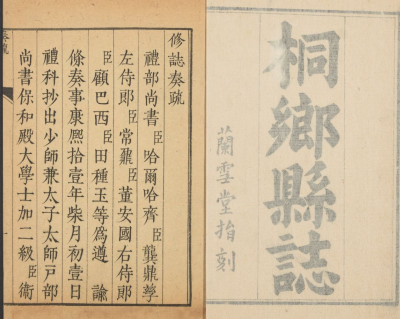 桐鄉縣誌
蘭雪堂指刻
修誌奏疏
禮部尚書臣哈爾哈齊臣龔鼎孳
左侍郎臣常鼐臣董安國右侍郎
臣顧巴西臣田種玉等爲遵 諭
條奏事康熙拾壹年柒月初壹日
禮科抄出少師兼太子太師戶部
尚書保和殿大學士加二級臣衞
一